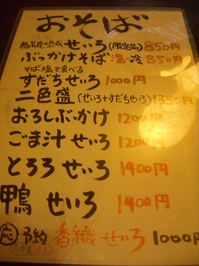 おそば
せいろ(限定品)850円
ぶっかけそば 温・冷 850円
そば塩で食べる
すだちせいろ 1000円
二色盛(せいろ+すだちせいろ)1350円
おろしぶっかけ 1200円
ごま汁せいろ 1200円
とろろせいろ 1400円
鴨せいろ 1400円
予約 香織せいろ 1000円